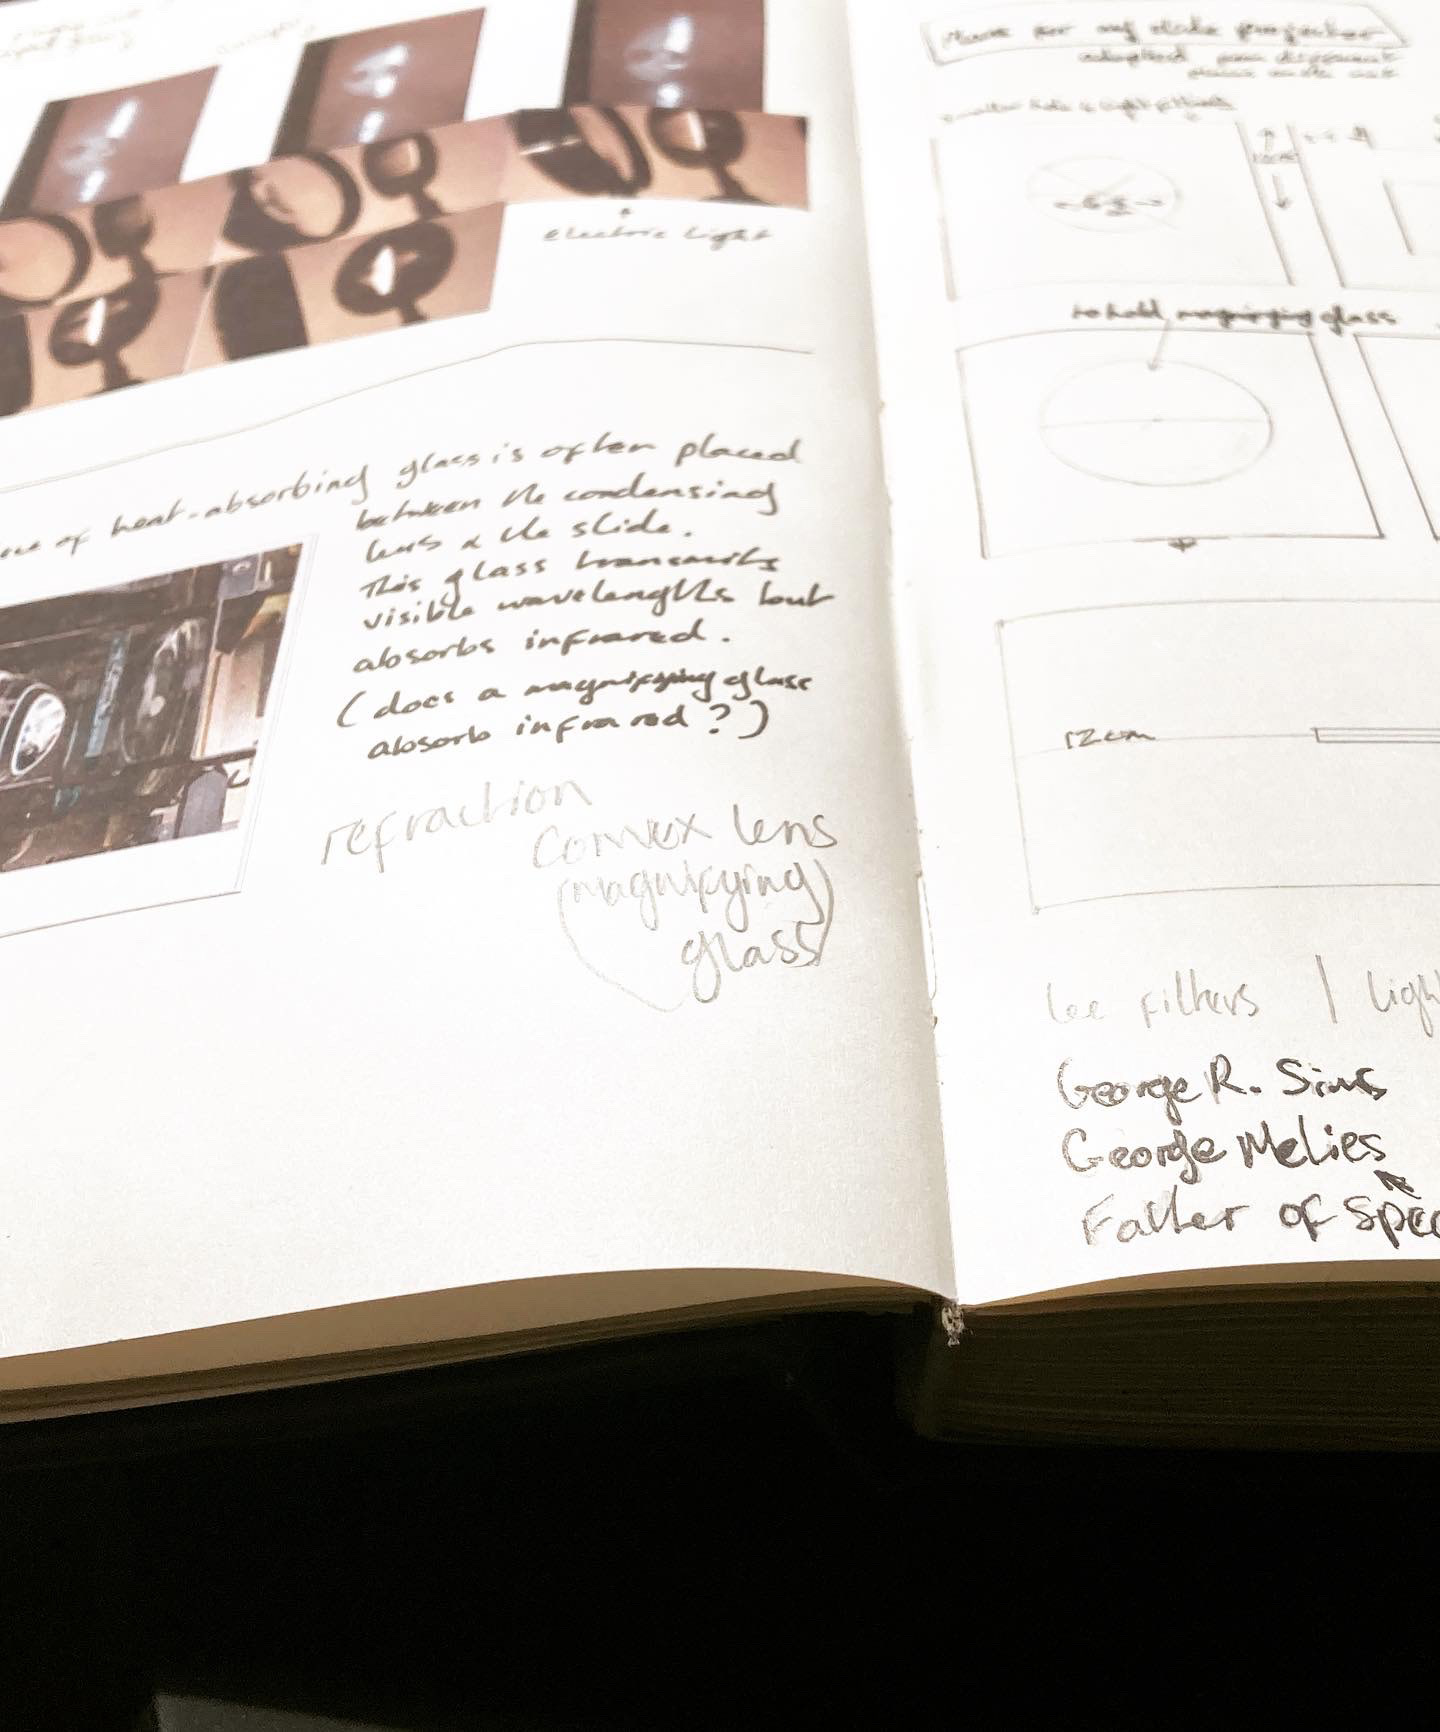 electric light
of heat-absorbing glass is often placed
between the condensing
lens & the slide.
This glass transmits
visible wavelengths but
absorbs infrared.
(does a magnifying glass
absorb infrared?)
refraction
Convex lens
(magnifying)
glass
Plans for my slide projector
adapted from different
to hold magnifying glass
12cm
Lee Filters |
George R. Sims
George Melies
Father of